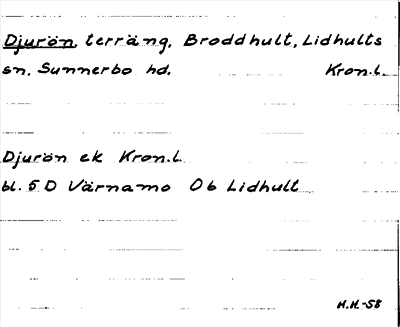 Djurön, terräng, Broddhult, Lidhults
sn, Sunnerbo hd. Kron.l.
Djurön ek Kron.l.
bl. 5 D Värnamo Ob Lidhult
H.H.-58